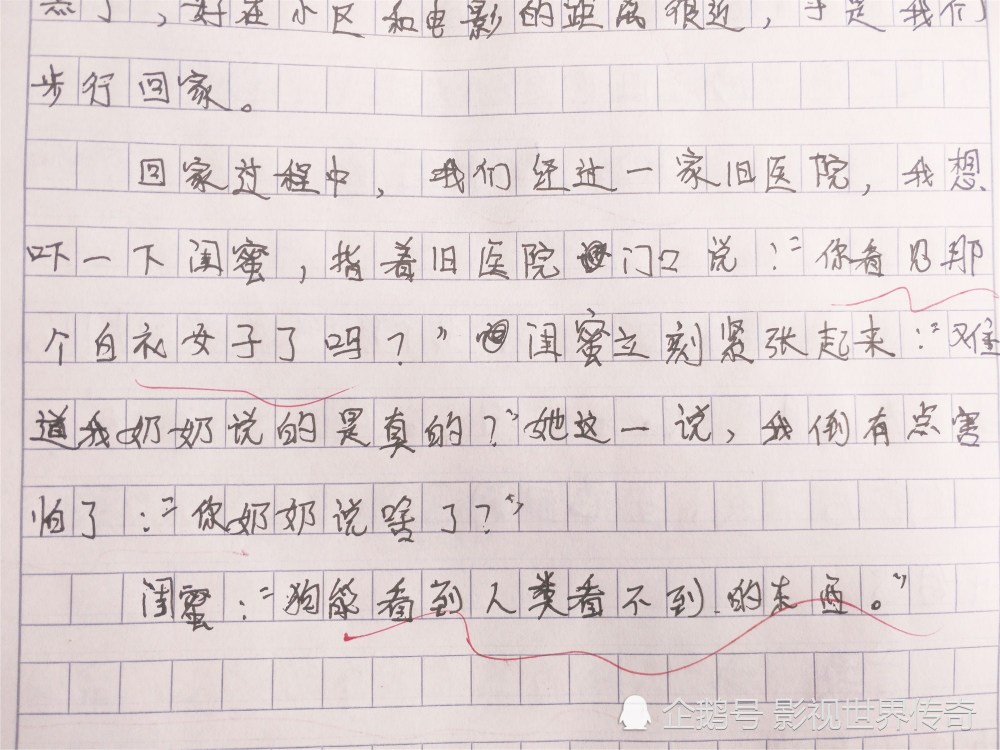 点了，好在小区和电影的距离很近，于是我们
步行回家。
回家过程中，我们经过一家旧医院，我想
吓一下闺蜜，指着旧医院门口说：“你看见那
个白衣女子了吗？”闺蜜立刻紧张起来：“难
道我奶奶说的是真的？”她这一说，我倒有点害
怕了：“你奶奶说啥了？”
闺蜜：“狗能看到人类看不到的东西。”
企鹅号 影视世界传奇